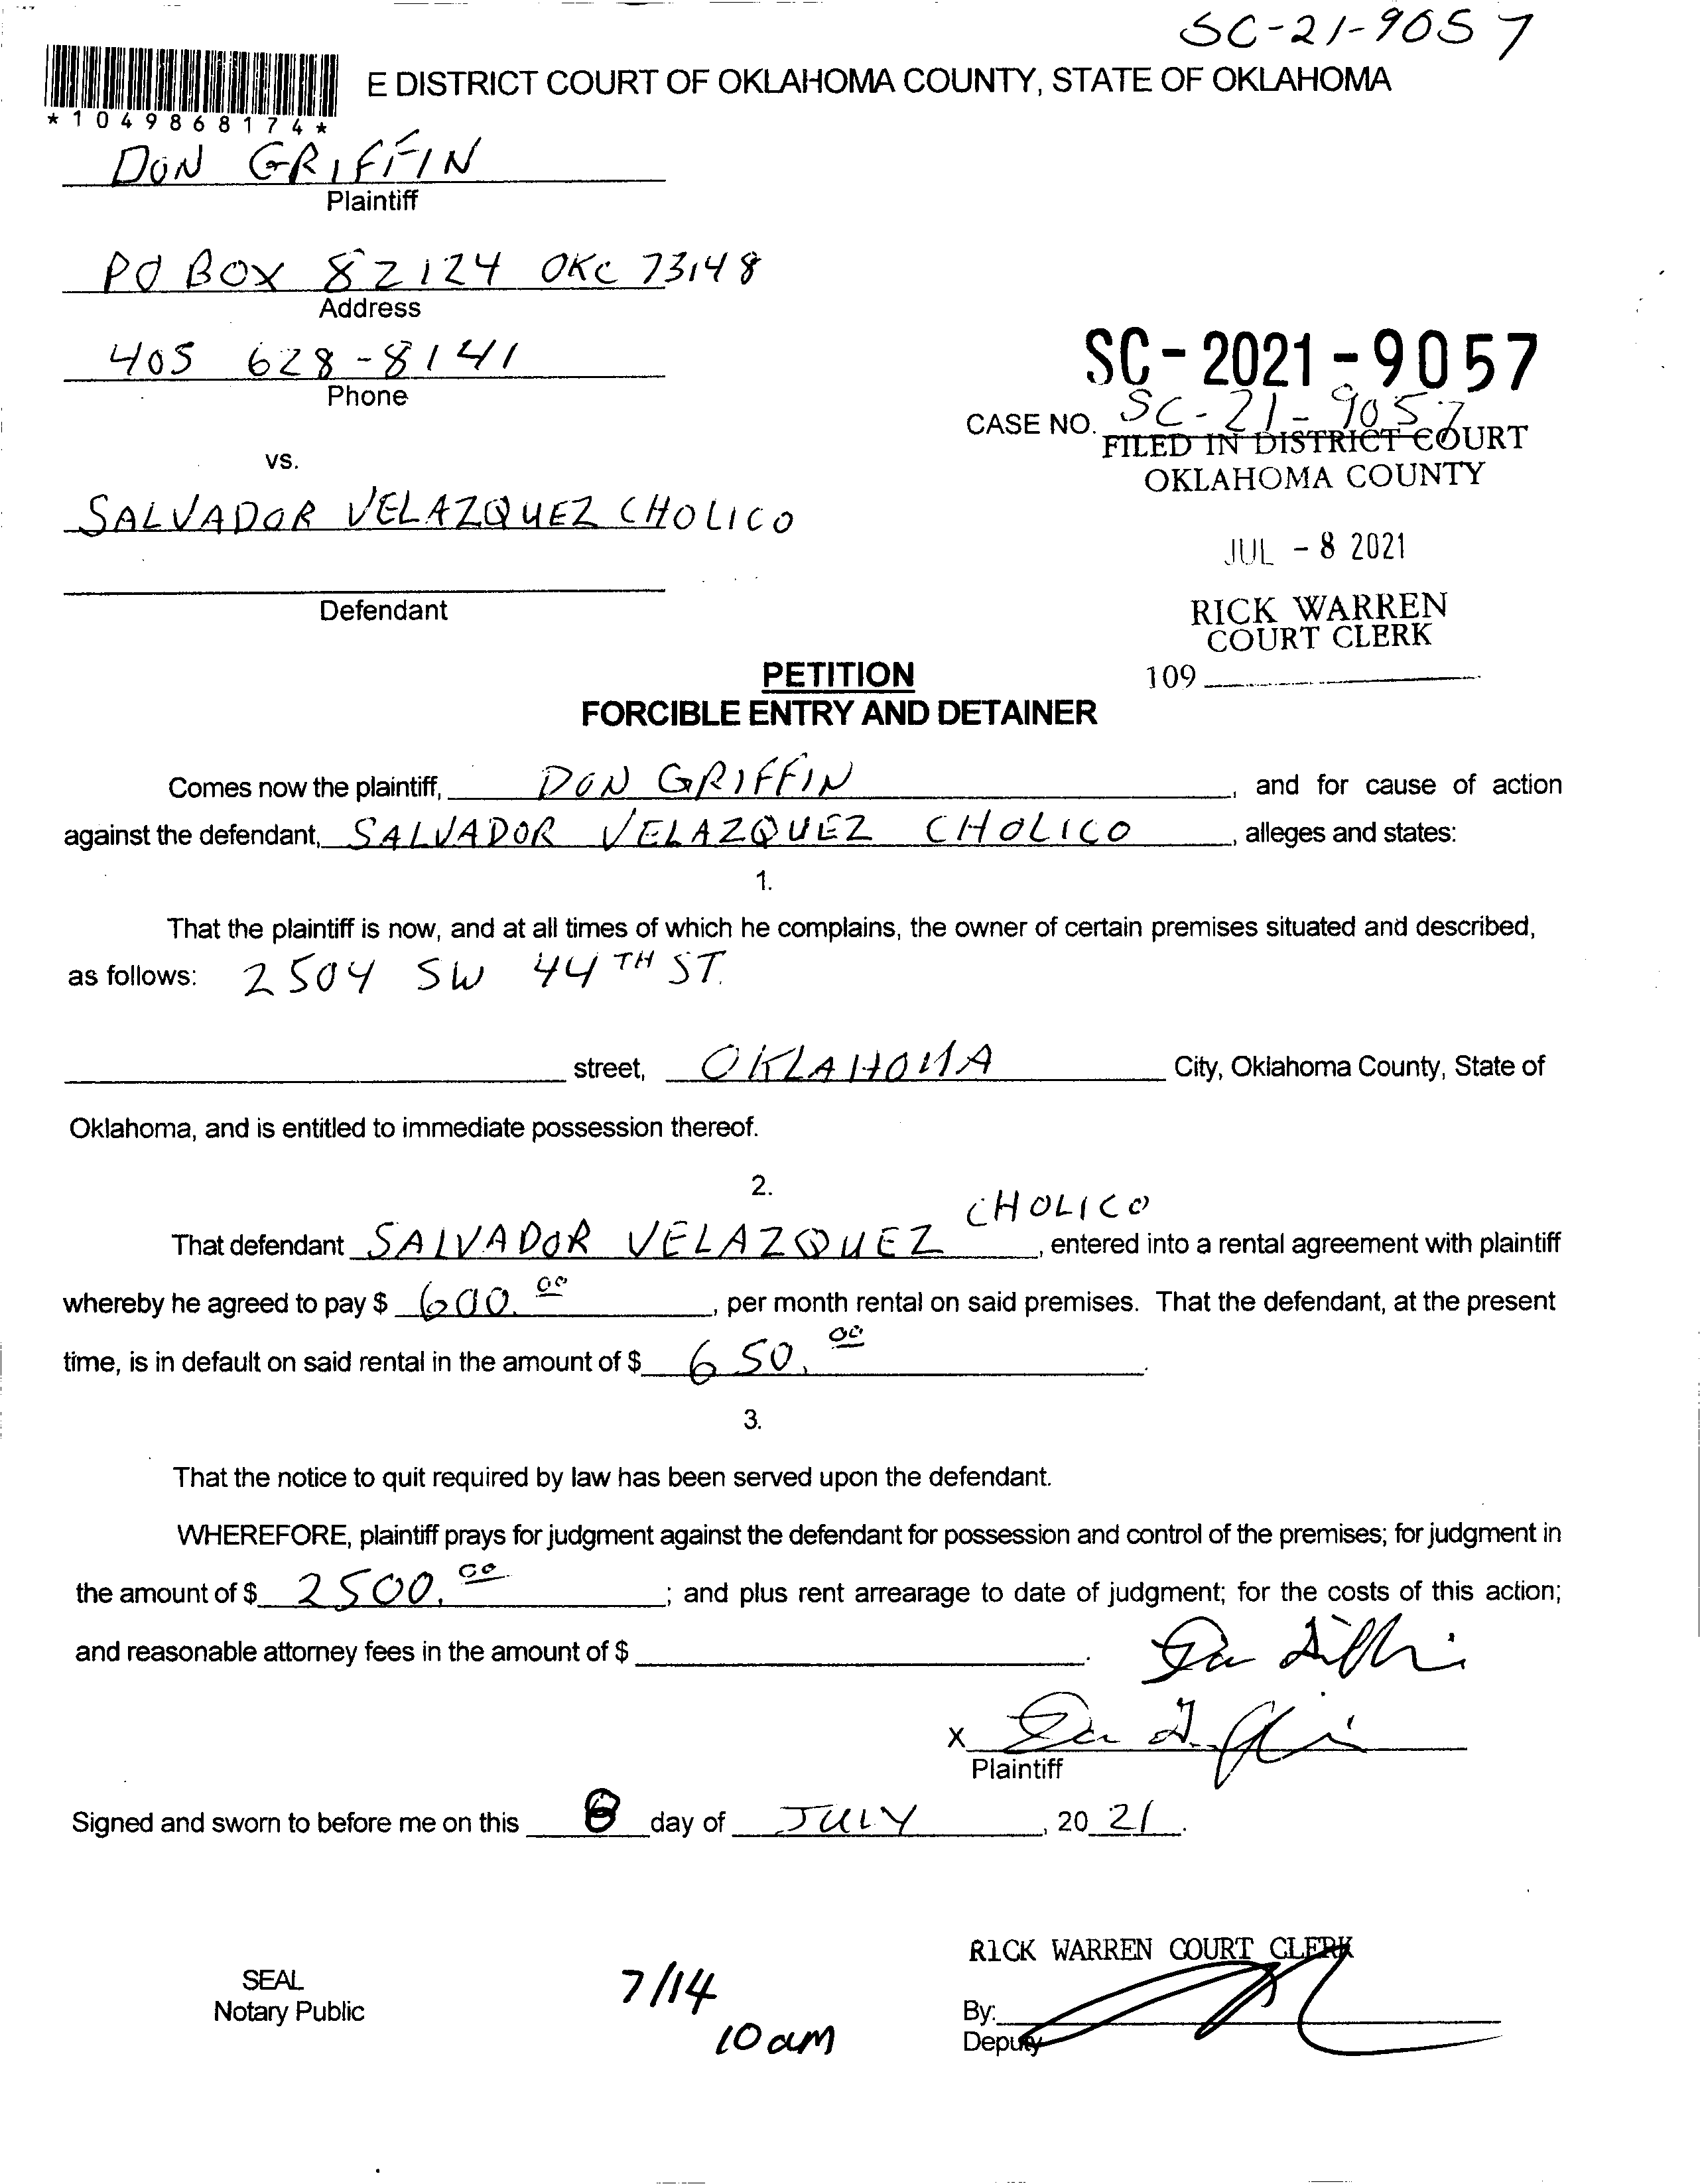 SC-21-9057
E DISTRICT COURT OF OKLAHOMA COUNTY, STATE OF OKLAHOMA
*1049868174*
DON GRIFFIN
Plaintiff
PO BOX 82124 OKC 73148
Address
405 628-8141
Phone
SC-2021-9057
CASE NO. SC-21-9057
FILED IN DISTRICT COURT
OKLAHOMA COUNTY
vs.
SALVADOR VELAZQUEZ CHOLICO
JUL - 8 2021
Defendant
RICK WARREN
COURT CLERK
109
PETITION
FORCIBLE ENTRY AND DETAINER
Comes now the plaintiff, DON GRIFFIN, and for cause of action
against the defendant, SALVADOR VELAZQUEZ CHOLICO, alleges and states:
1.
That the plaintiff is now, and at all times of which he complains, the owner of certain premises situated and described,
as follows: 2504 SW 44TH ST.
street, OKLAHOMA City, Oklahoma County, State of
Oklahoma, and is entitled to immediate possession thereof.
2.
CHOLICO
That defendant SALVADOR VELAZQUEZ, entered into a rental agreement with plaintiff
whereby he agreed to pay $ 600.00, per month rental on said premises. That the defendant, at the present
time, is in default on said rental in the amount of $ 650.00.
3.
That the notice to quit required by law has been served upon the defendant.
WHEREFORE, plaintiff prays for judgment against the defendant for possession and control of the premises; for judgment in
the amount of $ 2500.00; and plus rent arrearage to date of judgment; for the costs of this action;
and reasonable attorney fees in the amount of $ .
X
Plaintiff
Signed and sworn to before me on this 8 day of JULY, 20 21.
RICK WARREN COURT CLERK
SEAL
Notary Public
7/14
10 am
By:
Deputy